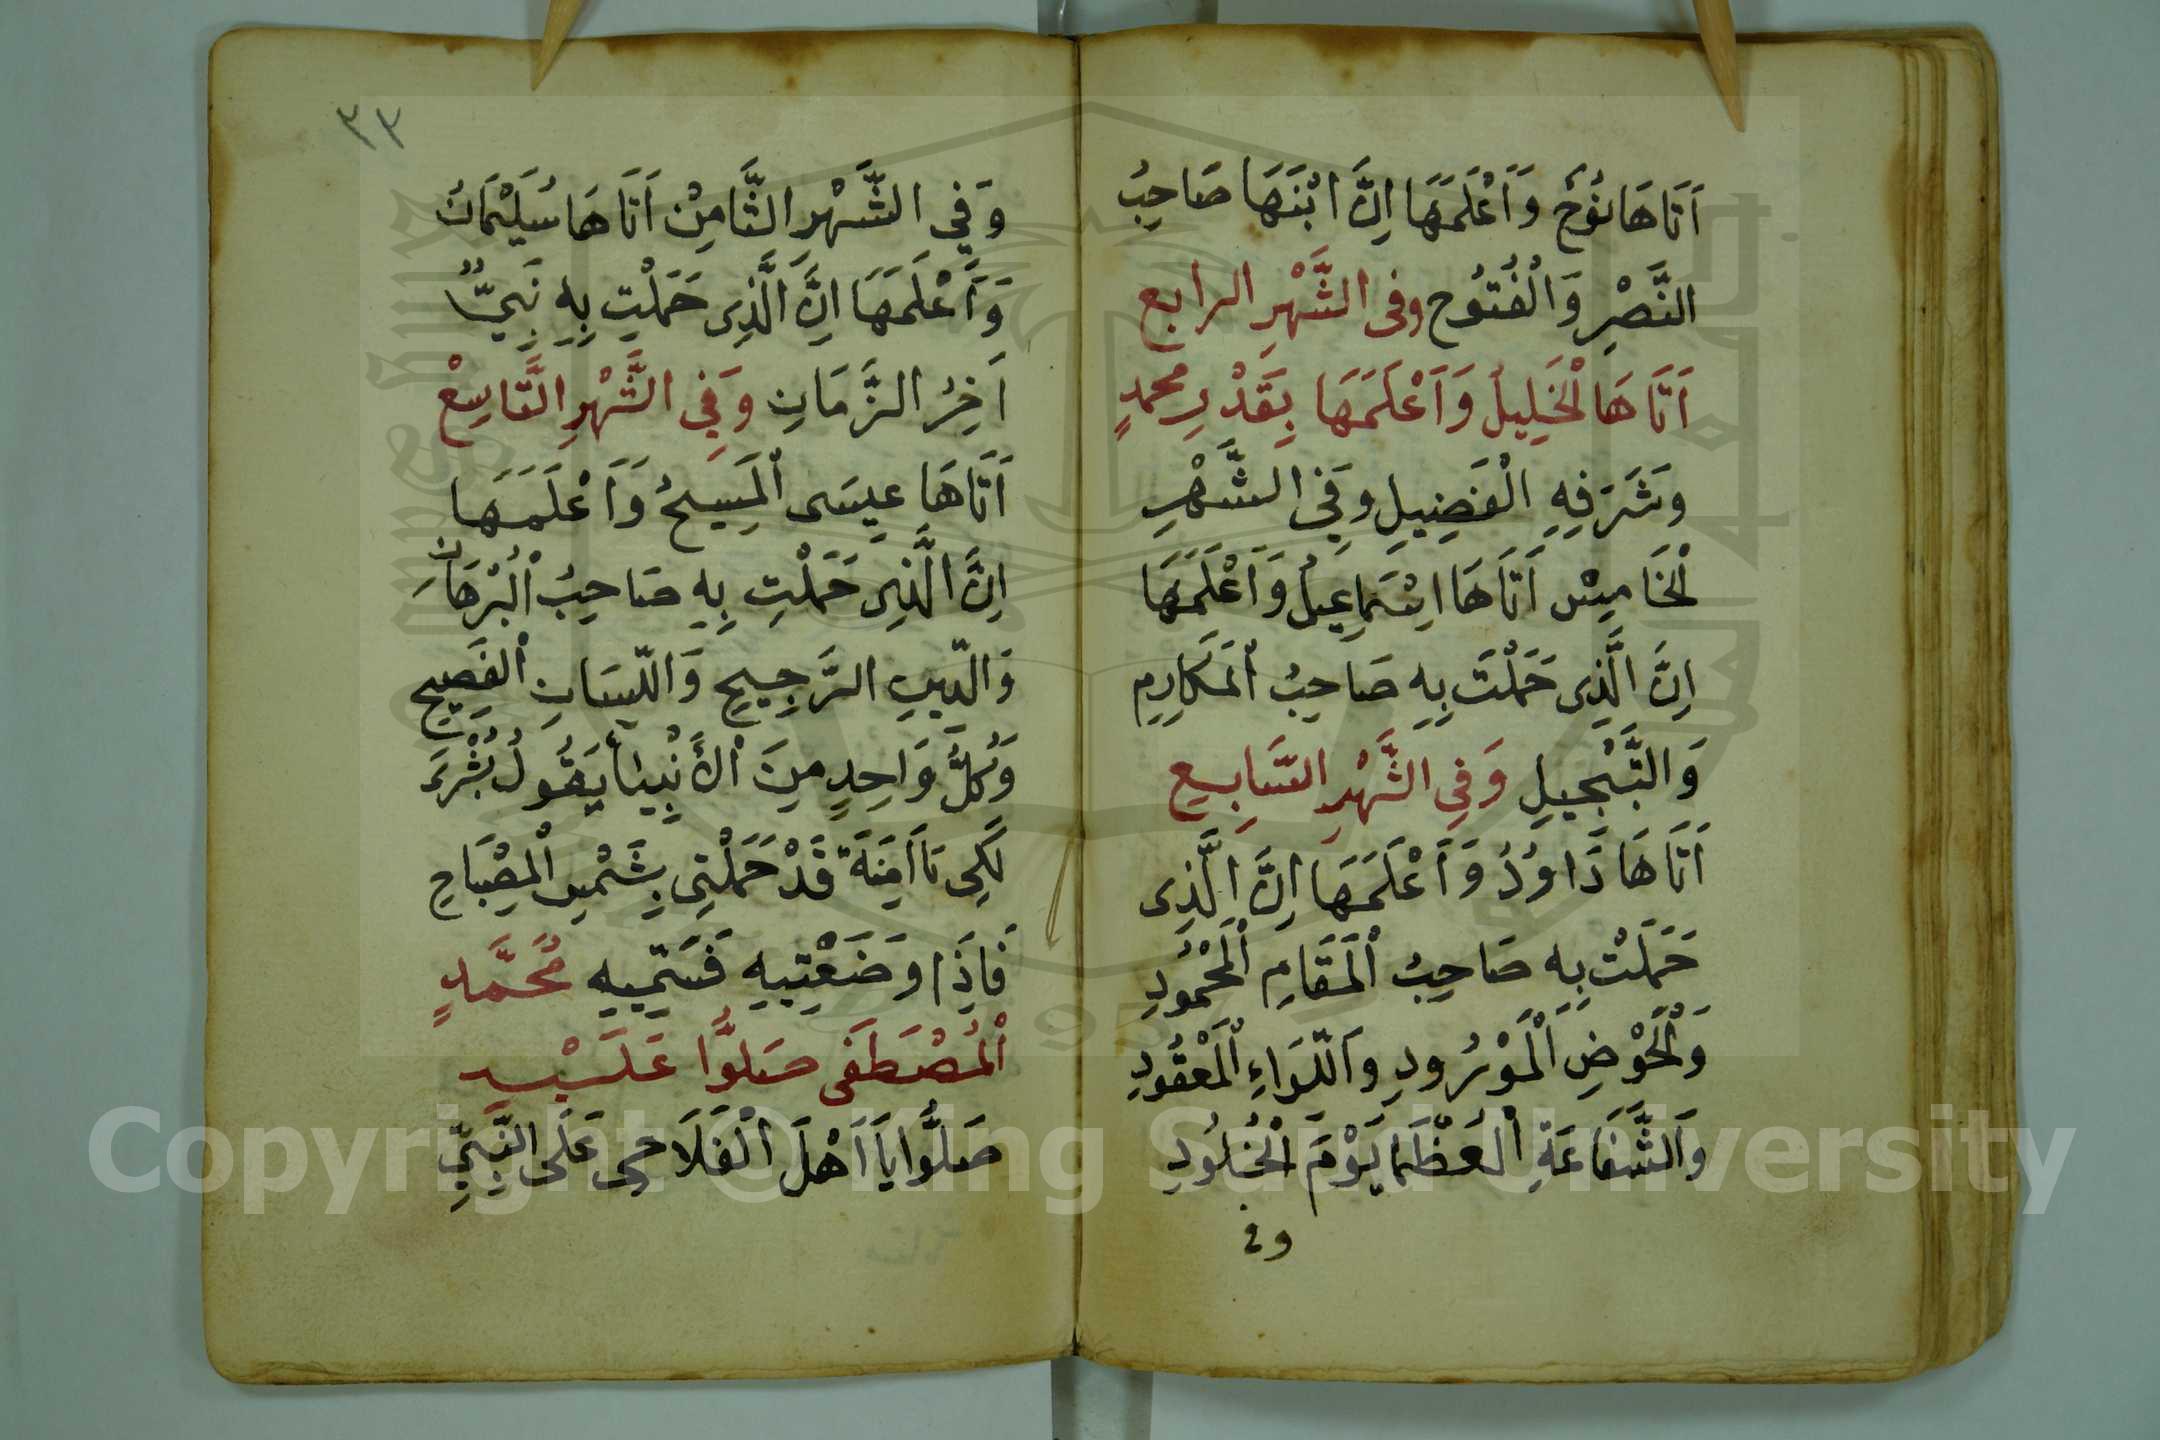 اَتَاهَا نُوْحٌ وَاَعْلَمَهَا اِنَّ ابْنَهَا صَاحِبُ
النَّصْرِ وَالْفُتُوْح وفى الشَّهْرِ الرابع
اَتَاهَا الْخَلِيلُ وَاَعْلَمَهَا بِقَدْرِ محمدٍ
وَشَرَفِهِ الْفَضِيلِ وَفِي الشَّهْرِ
الْخَامِسْ اَتَاهَا اِسْمَاعِيلُ وَاَعْلَمَهَا
اِنَّ الَّذِى حَمَلْتَ بِهِ صَاحِبُ الْمَكَارِمِ
وَالتَّبْجِيلِ وَفِي الشَّهْرِ السَّابِعِ
اَتَاهَا دَاوُدُ وَاَعْلَمَهَا اِنَّ الَّذِى
حَمَلَتْ بِهِ صَاحِبُ الْمَقَامِ الْمَحْمُودِ
وَالْحَوْضِ الْمَوْرُودِ وَاللّوَاءِ الْمَعْقُودِ
وَالشَّفَاعَةِ الْعَظْمَا يَوْمَ الْخُلُودِ
وفى
٣٣
وَفِي الشَّهْرِ الثَّامِنْ اَتَاهَا سُلَيْمَانُ
وَاَعْلَمَهَا اِنَّ الَّذِى حَمَلْتِ بِهِ نَبِيٌّ
اَخِرُ الزَّمَانِ وَفِي الشَّهْرِ التَّاسِعْ
اَتَاهَا عِيسَى الْمَسِيحُ وَاَعْلَمَهَا
اِنَّ الَّذِى حَمَلْتِ بِهِ صَاحِبُ الْبُرْهَانِ
وَالدّينِ الرَّجِيحِ وَاللّسَانِ الْفَصِيحِ
وَكُلُّ وَاحِدٍ مِنَ الْأَنْبِيَا يَقُولُ بُشْرَىَ
لَكِى يَا اَمِنَةَ قَدْ حَمَلْتِى بِشَمْسِ الْمِصْبَاحِ
فَاِذَا وَضَعْتِيهِ فَسَمِّيهِ مُحَمَّدٍ
الْمُصْطَفَى صَلُّوا عَلَيْهِ
صَلُّوا يَا اَهْلَ الْفَلَاحِى عَلَى النَّبِيِّ
Copyright © King Saud University